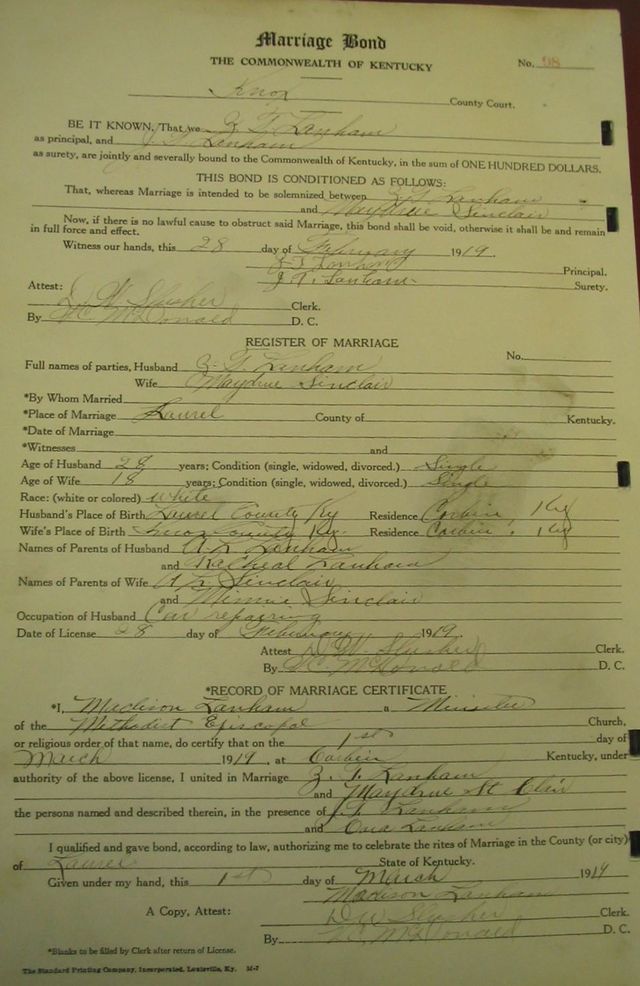 Marriage Bond
THE COMMONWEALTH OF KENTUCKY
No. 98
Knox County Court.
BE IT KNOWN, That we Z. T. Lanham
as principal, and J. T. Lanham
as surety, are jointly and severally bound to the Commonwealth of Kentucky, in the sum of ONE HUNDRED DOLLARS.
THIS BOND IS CONDITIONED AS FOLLOWS:
That, whereas Marriage is intended to be solemnized between Z. T. Lanham
and Maydrue Sinclair
Now, if there is no lawful cause to obstruct said Marriage, this bond shall be void, otherwise it shall be and remain
in full force and effect.
Witness our hands, this 28 day of February 1919.
Z. T. Lanham Principal.
J. T. Lanham Surety.
Attest:
D W Slusher Clerk.
By McDonald D. C.
REGISTER OF MARRIAGE
No.
Full names of parties, Husband Z. T. Lanham
Wife Maydrue Sinclair
*By Whom Married
*Place of Marriage Laurel County of Kentucky.
*Date of Marriage
*Witnesses and
Age of Husband years; Condition (single, widowed, divorced.) Single
Age of Wife 18 years; Condition (single, widowed, divorced.) Single
Race: (white or colored) White
Husband's Place of Birth Laurel County Ky Residence Corbin, Ky
Wife's Place of Birth Knox County Ky. Residence Corbin, Ky
Names of Parents of Husband A. L. Lanham
and Lanham
Names of Parents of Wife Sinclair
and Minnie Sinclair
Occupation of Husband Car repairing
Date of License 28 day of February 1919.
Attest D W Slusher Clerk.
By McDonald D. C.
*RECORD OF MARRIAGE CERTIFICATE
*I, Madison Lanham a Minister
of the Methodist Episcopal Church,
or religious order of that name, do certify that on the 1st day of
March 1919, at Corbin Kentucky, under
authority of the above license, I united in Marriage Z. T. Lanham
and Maydrue St Clair
the persons named and described therein, in the presence of J. T. Lanham
and
I qualified and gave bond, according to law, authorizing me to celebrate the rites of Marriage in the County (or city)
of Laurel State of Kentucky.
Given under my hand, this 1st day of March 1919
Madison Lanham
A Copy, Attest: D W Slusher Clerk.
By McDonald D. C.
*Blanks to be filled by Clerk after return of License.
The Standard Printing Company, Incorporated, Louisville, Ky. M-7